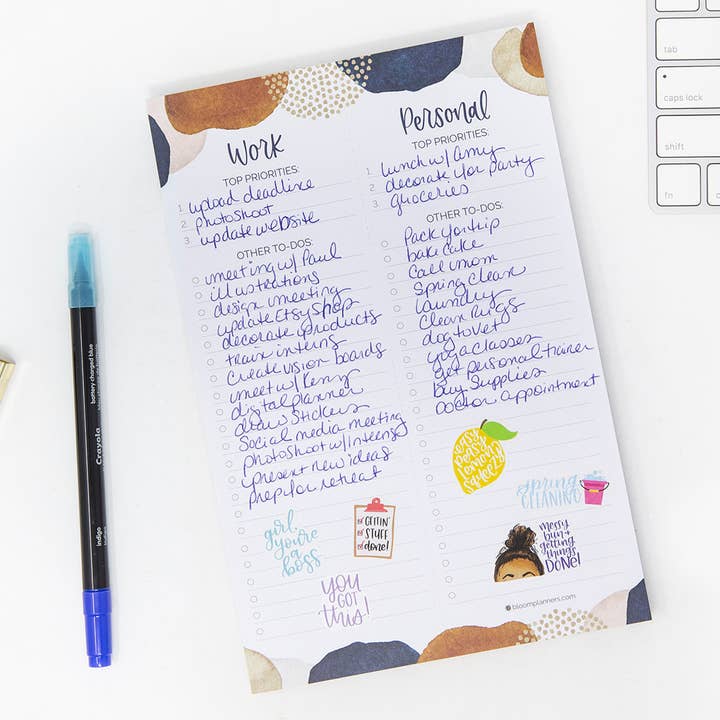 Work
TOP PRIORITIES:
1. upload deadline
2. photoshoot
3. update website
OTHER TO-DOS:
meeting w/ Paul
illustrations
design meeting
update Etsy Shop
decorate products
train interns
Create vision boards
meet w/ Kenny
digital planner
draw Stickers
Social media meeting
photoshoot w/ interns
present new ideas
prep for retreat
girl,
you're
a
boss
GETTIN'
STUFF
done!
YOU
GOT
this!
Personal
TOP PRIORITIES:
1. lunch w/ Amy
2. decorate for party
3. groceries
OTHER TO-DOS:
Pack for trip
bake cake
Call mom
Spring Clean
laundry
Clean Rugs
dog to Vet
yoga classes
get personal trainer
Buy Supplies
Doctor appointment
easy
peasy
lemon
squeezy
spring
CLEANING
messy
bun +
getting
things
DONE!
bloomplanners.com
tab
caps lock
shift
fn
battery charged blue
Crayola
indigo